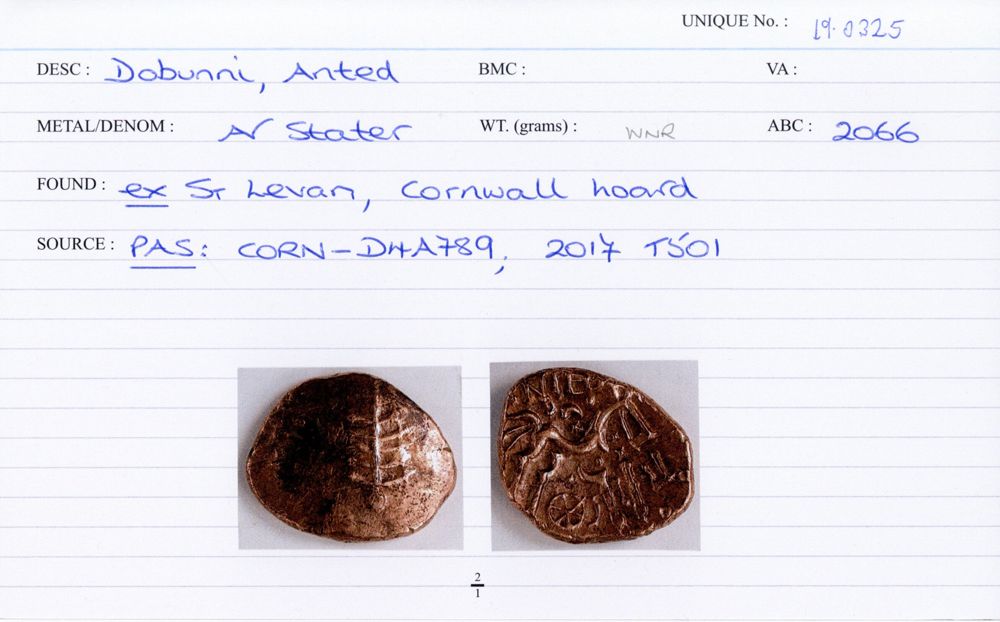 UNIQUE No. : 19.0325
DESC : Dobunni, Anted BMC : VA :
METAL/DENOM : AV Stater WT. (grams) : WNR ABC : 2066
FOUND : ex St Levan, Cornwall hoard
SOURCE : PAS: CORN-D4A789, 2017 T501
2
1